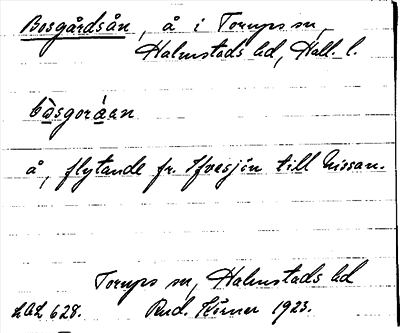 Bosgårdsån, å i Torups sn,
Halmstads hd, Hall. l.
bòsgoráan
å, flytande fr. Ifvesjön till Nissan.
Torups sn, Halmstads hd
LAL 628. Rud. 1923.